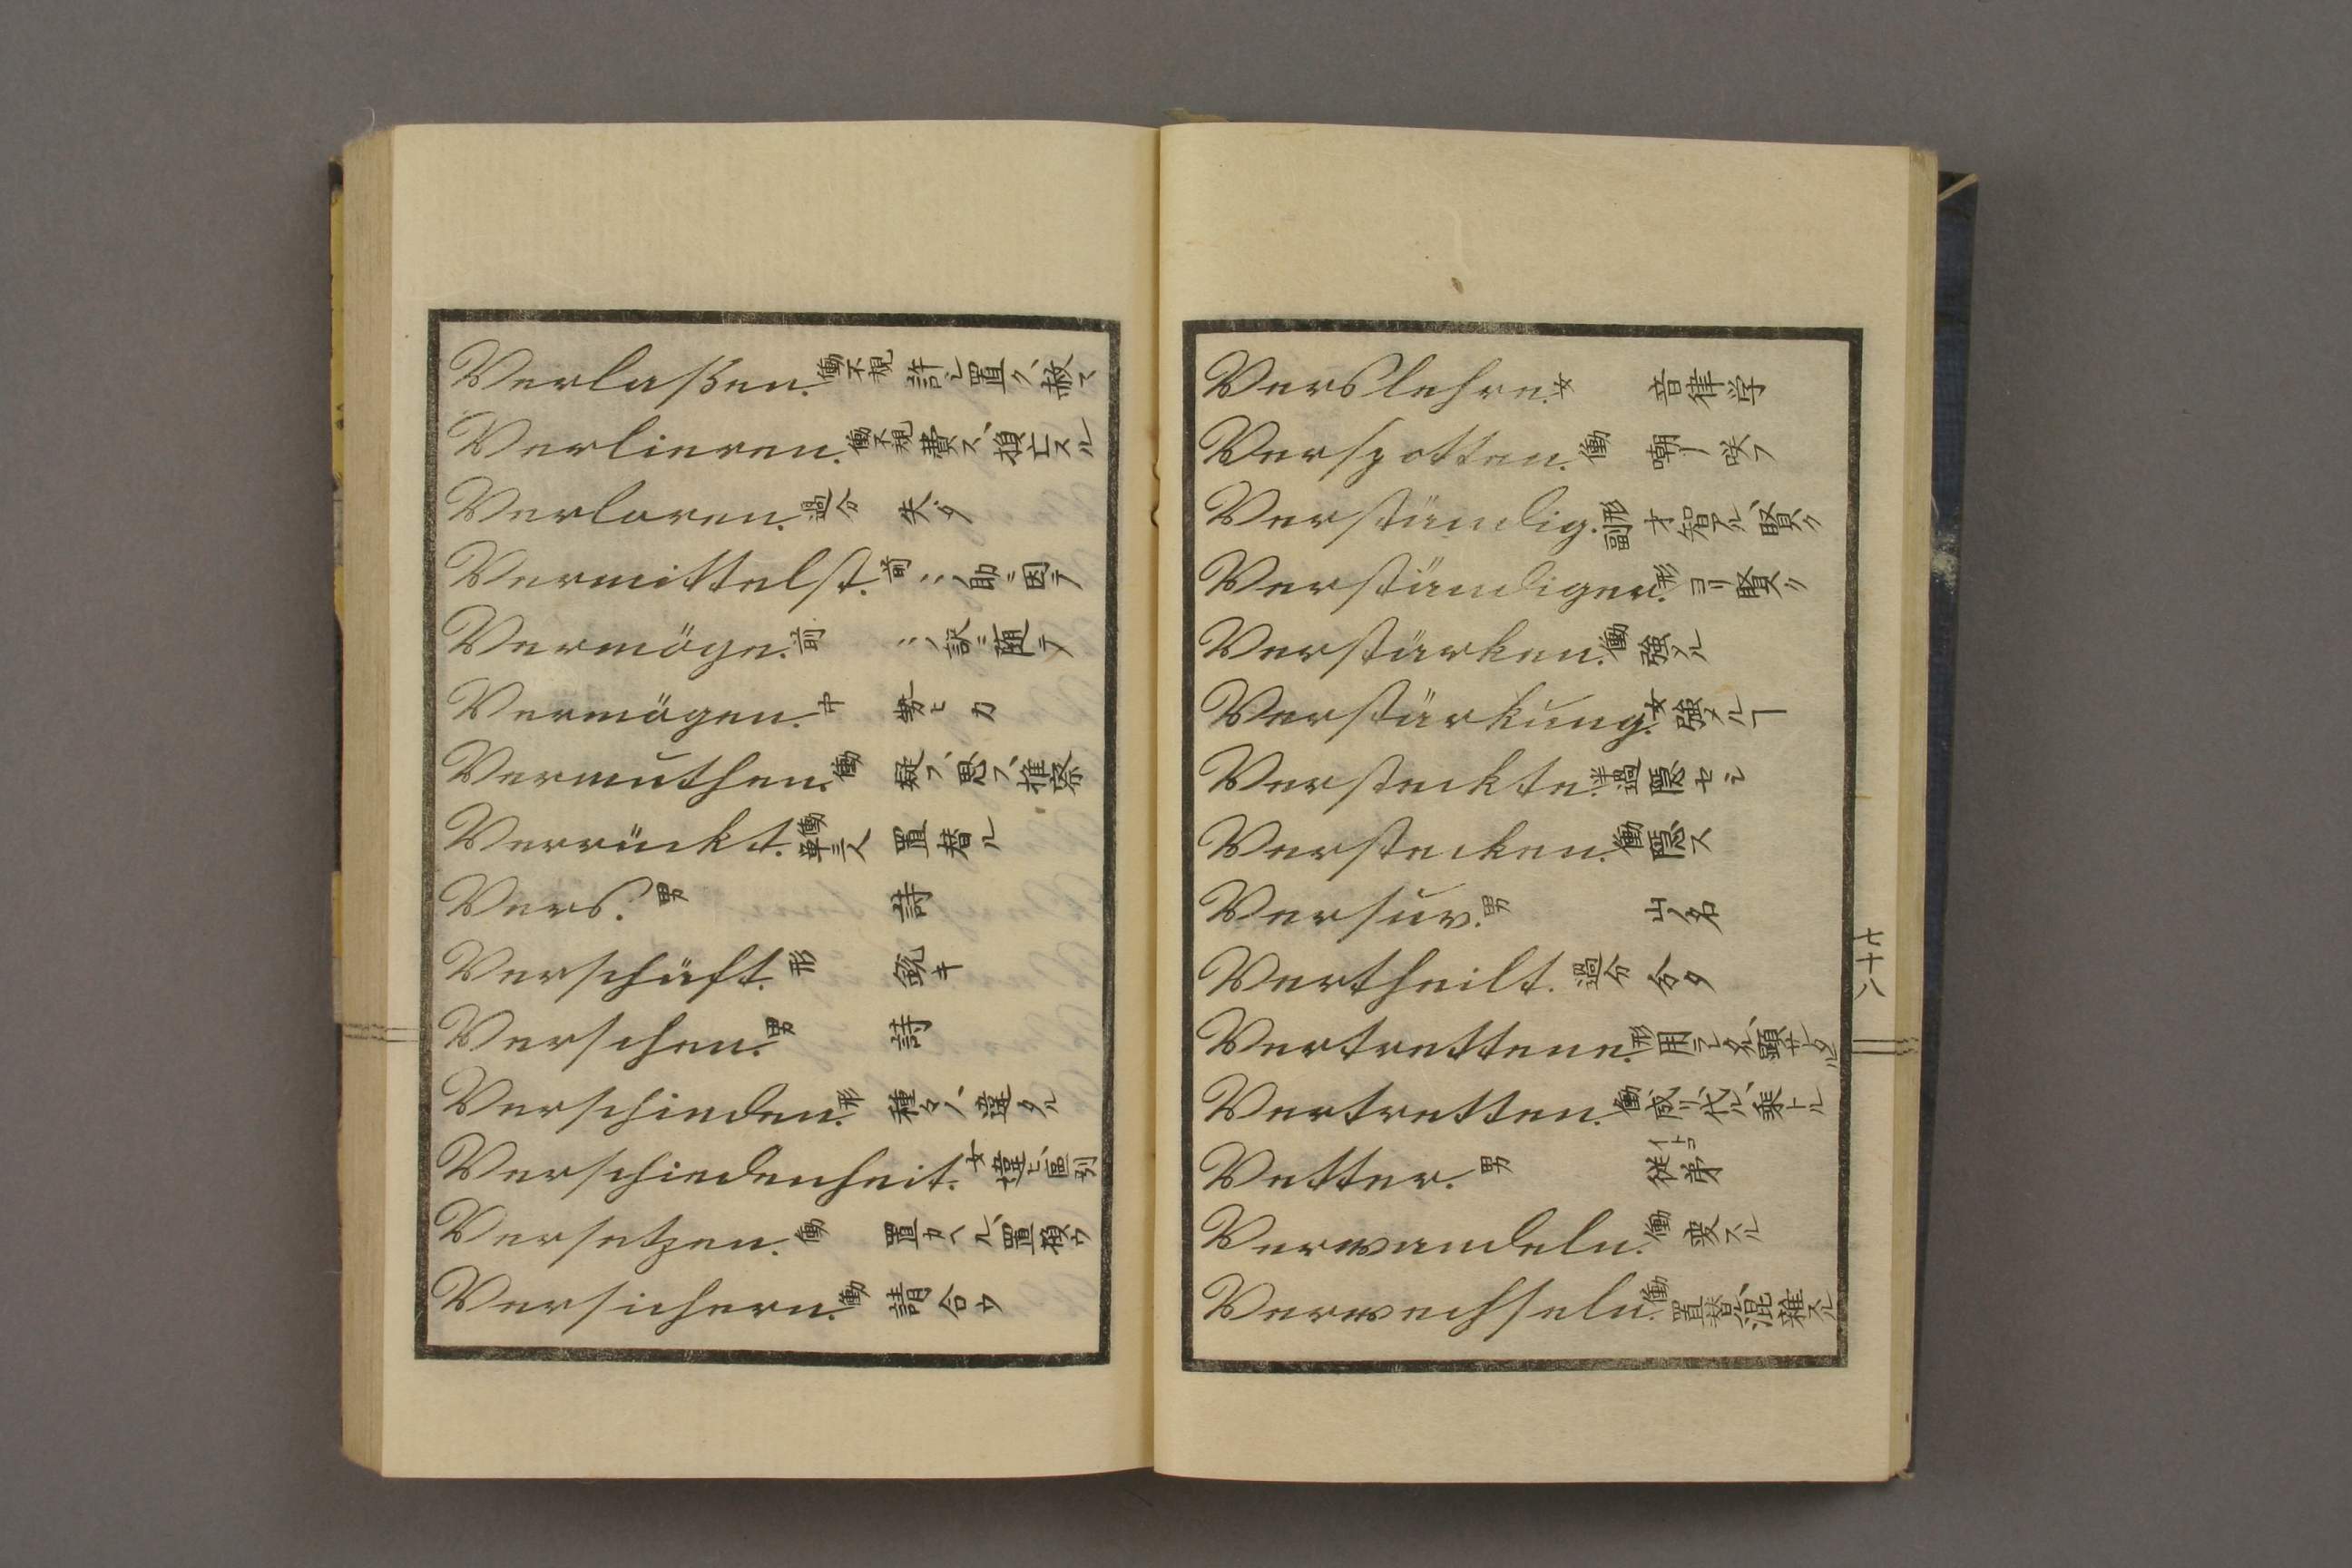 Verlaßen. 働不規 許シ置ク、赦ス
Verlieren. 働不規 費ス、損亡スル
Verloren. 過分 失タ
Vermittelst. 前 ‥ノ助ニ因テ
Vermöge. 前 ‥ノ訳ニ随テ
Vermögen. 中 勢ヒ 力
Vermuthen. 働 疑フ、思フ、推察
Verrückt. 働単三人 置替ル
Vers. 男 詩
Verschäft. 形 鋭キ
Verschen. 男 詩
Verschieden. 形 種々ノ、違タル
Verschiedenheit. 女 違ヒ、區別
Versetzen. 働 置カヘル、置換ウ
Versichern. 働 請合ウ
Verslehre. 女 音律学
Verspotten. 働 嘲ケリ咲フ
Verständig. 形副 才智アル、賢ク
Verständiger. 形 ヨリ賢ク
Verstärken. 働 強メル
Verstärkung. 女 強メルヿ
Versteckte. 半過 隠セシ
Verstecken. 働 隠ス
Versuv. 男 山ノ名
Vertheilt. 過分 分タ
Vertrettene. 形 用ヒラレタル、顕サレタル
Vertretten. 働
Vetter. 男 従弟 イトコ
Verwandeln. 働 変スル
Verwechseln. 働 置替ル、混雑スル
七十八